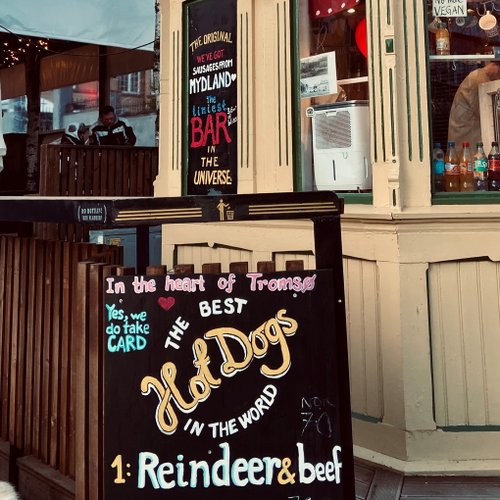 THE ORIGINAL
WE'VE GOT
SAUSAGES FROM
MYDLAND
The
tiniest
BAR
IN THE
UNIVERSE
VEGAN
In the heart of Tromsø
Yes, we
do take
CARD
THE BEST
Hot Dogs
IN THE WORLD
NOK
70
1: Reindeer & beef